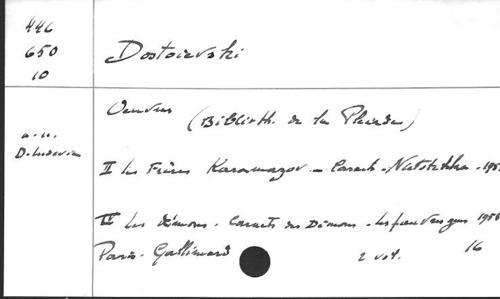 446
650
10
Dostoievski
Oeuvres (Biblioth. de la Pleiade)
a.u.
D. Ludovic
II Les Frères Karamazov - Carnets - Niétotchka - 195
III Les démons. Carnets des Démons. Les pauvres gens 1956
Paris. Gallimard 2 vol. 16